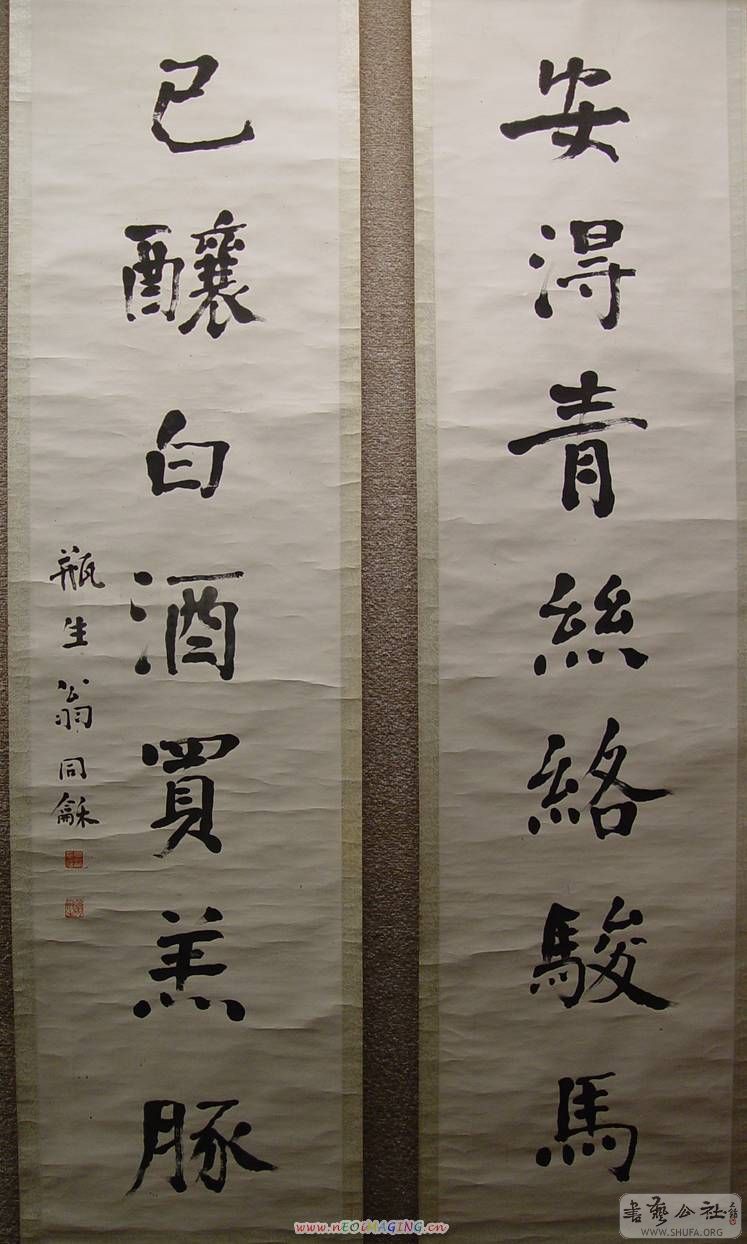 安得青絲絡駿馬
已釀白酒買羔豚
瓶生翁同龢
www.nEOiMAGING.cn
書藝公社
WWW.SHUFA.ORG